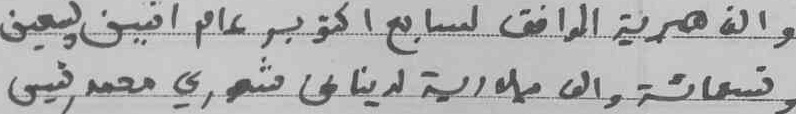 والف هجرية الموافق لسابع اكتوبر عام اثنين سبعين
وتسعمائة والف ميلادية لدينا نحن شكري محمد